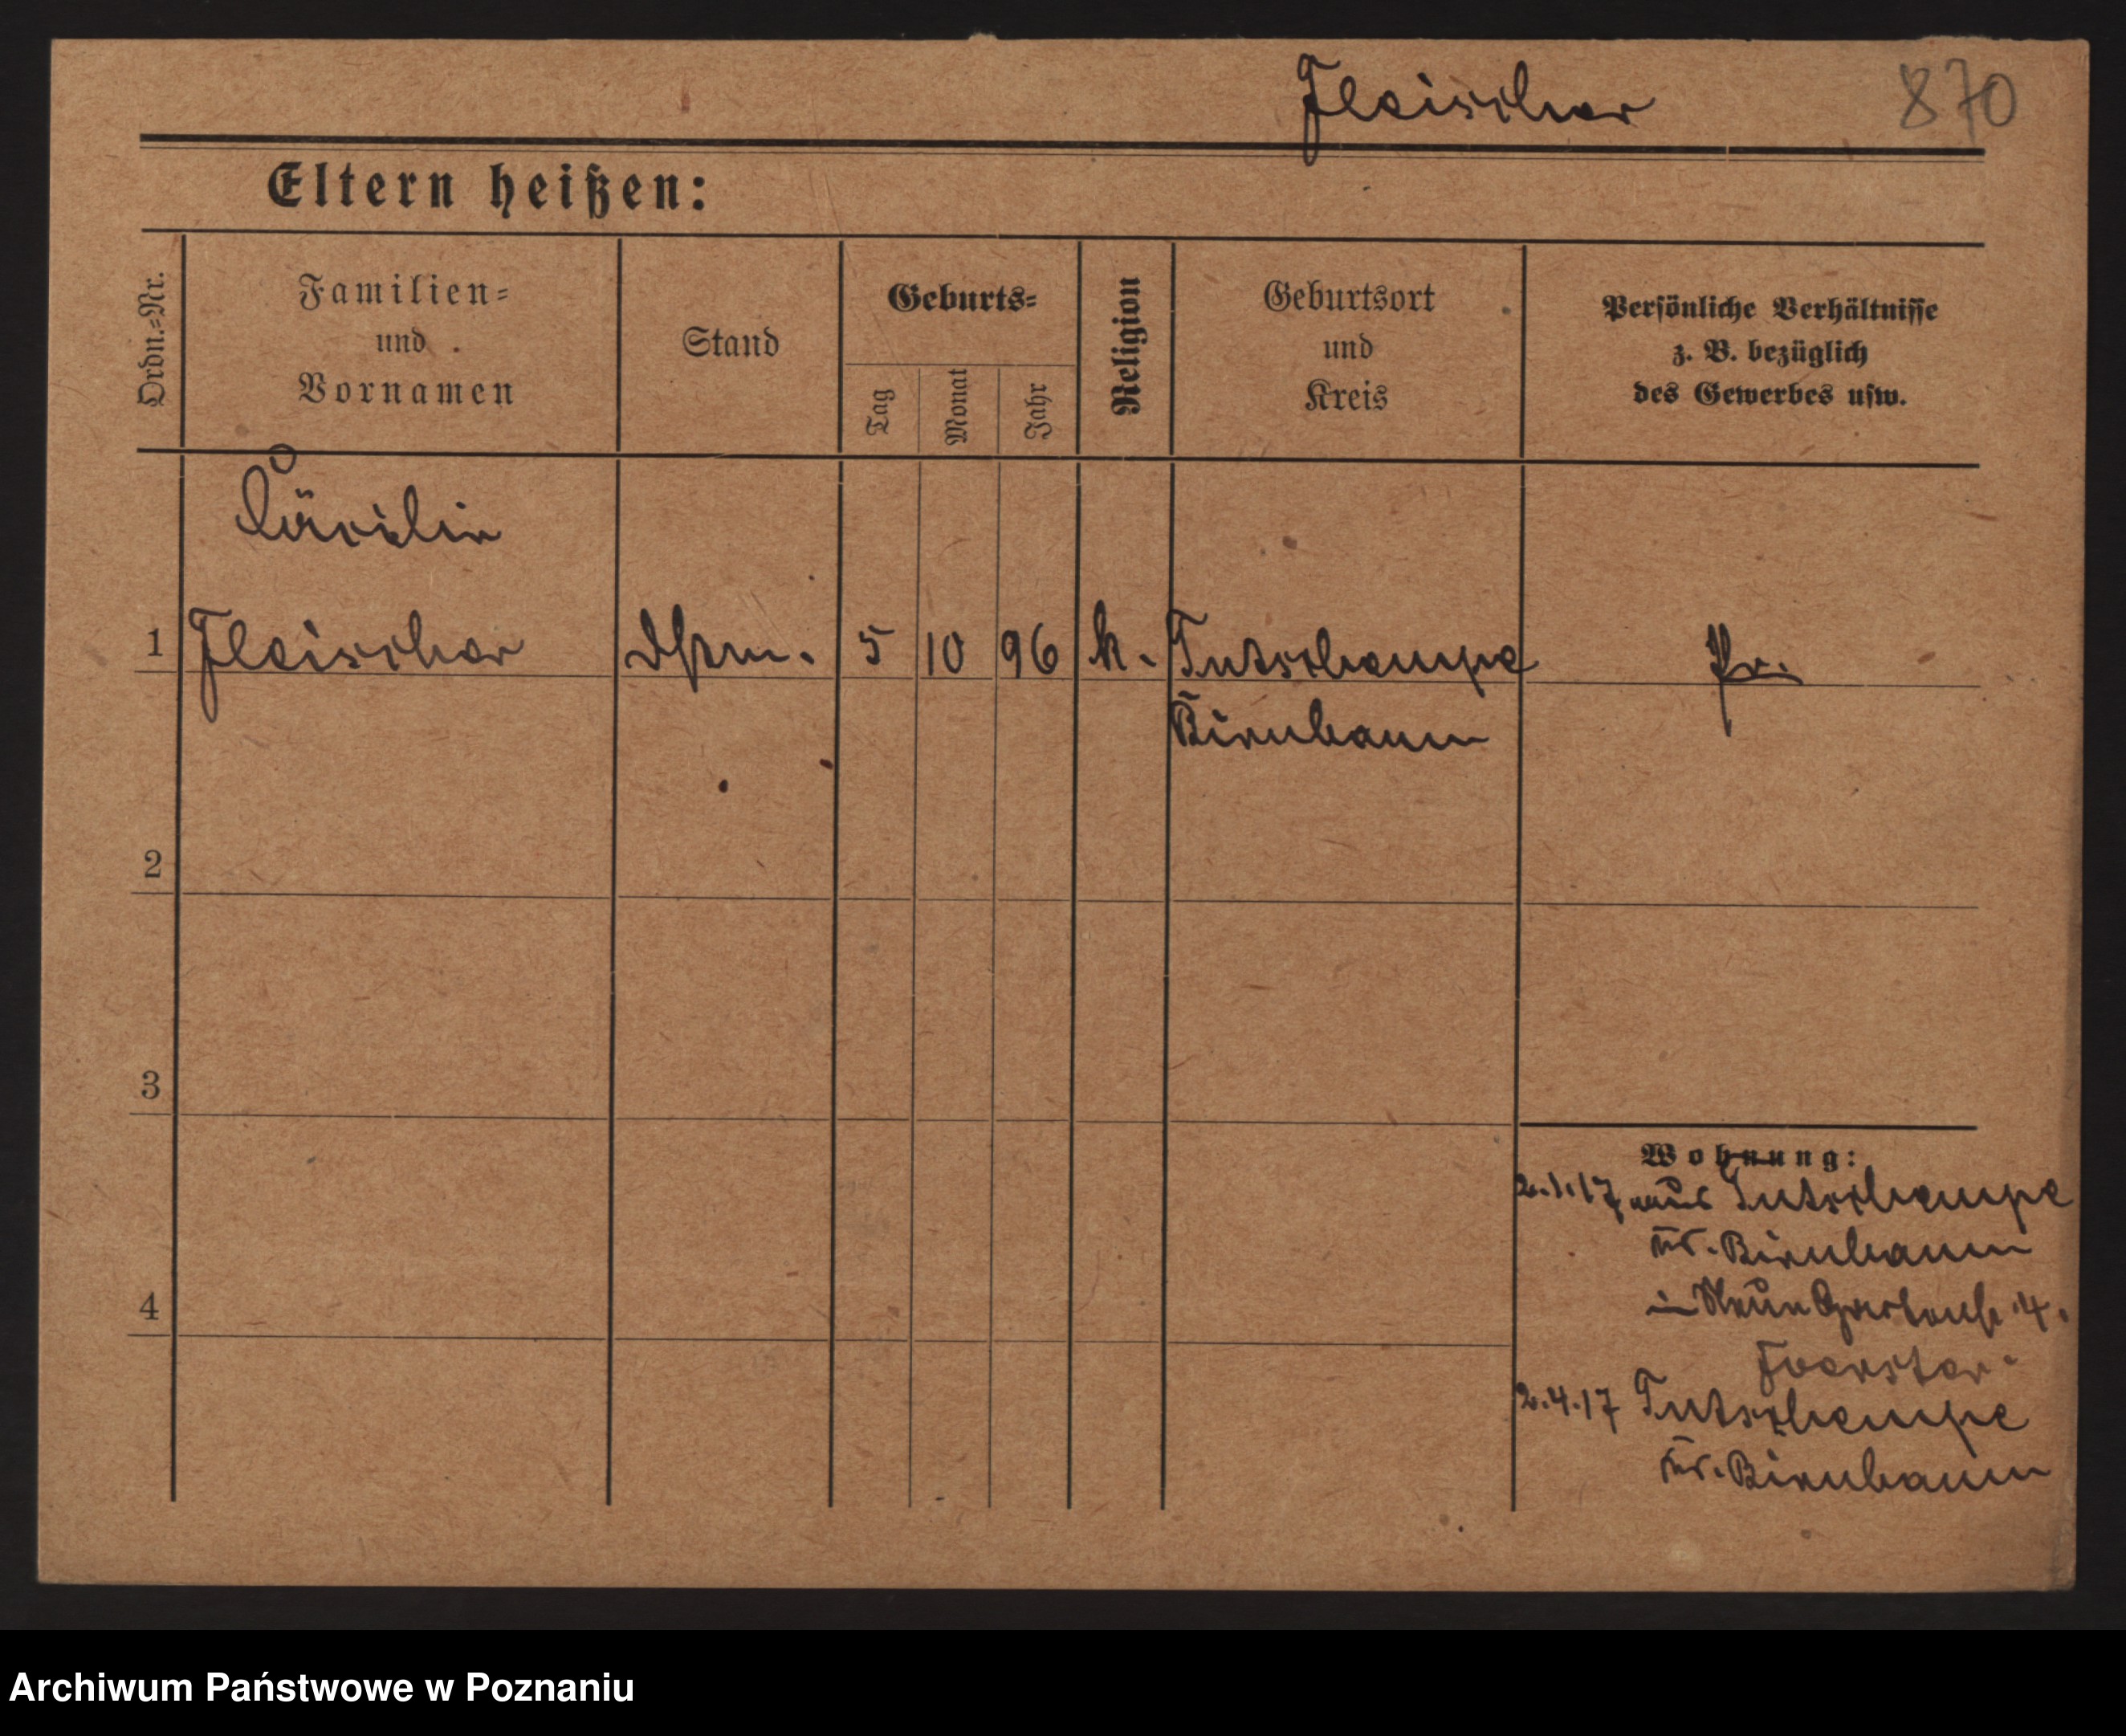 Fleischer 870
Eltern heißen:
Ordn.=Nr.
Familien=
und
Vornamen
Stand
Geburts=
Tag
Monat
Jahr
Religion
Geburtsort
und
Kreis
Persönliche Verhältnisse
z. B. bezüglich
des Gewerbes usw.
Cäcilie
1 Fleischer 5 10 96 k. Tutschempe Pr.
Birnbaum
2
3
4
Wohnung:
2.1.17 aus Tutschempe
Kr. Birnbaum
in Neue Gartenstr. 4.
Foerster
2.4.17 Tutschempe
Kr. Birnbaum
Archiwum Państwowe w Poznaniu